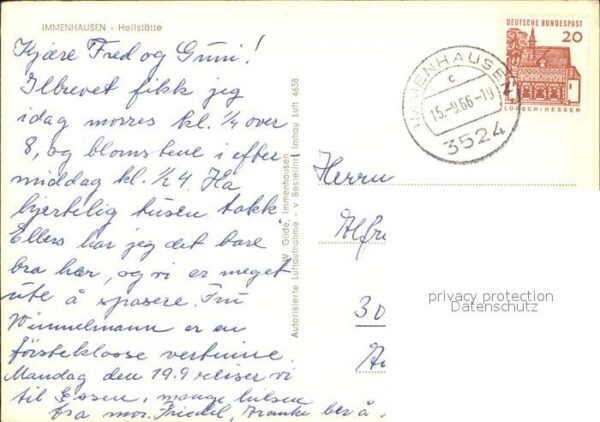 IMMENHAUSEN - Heilstätte
Kjære Fred og Guni!
Ilbrevet fikk jeg
idag morres kl. ¼ over
8, og blomstene i efter
middag kl. ½ 4. Ha
hjertelig tusen takk.
Ellers har jeg det bare
bra her, og vi er meget
ute å spasere. Fru
Wimmelmann er en
försteklasse vertinne.
Mandag den 19.9 reiser vi
til Essen, mange hilsen
fra mor. Friedel,
W. Gude, Immenhausen
Autorisierte Luftaufnahme - v Bes.
Imhau Luft 4638
DEUTSCHE BUNDESPOST
20
LORSCH/HESSEN
IMMENHAUSEN
c
15.-9.66-19
3524
Herrn
Alfr
30
privacy protection
Datenschutz